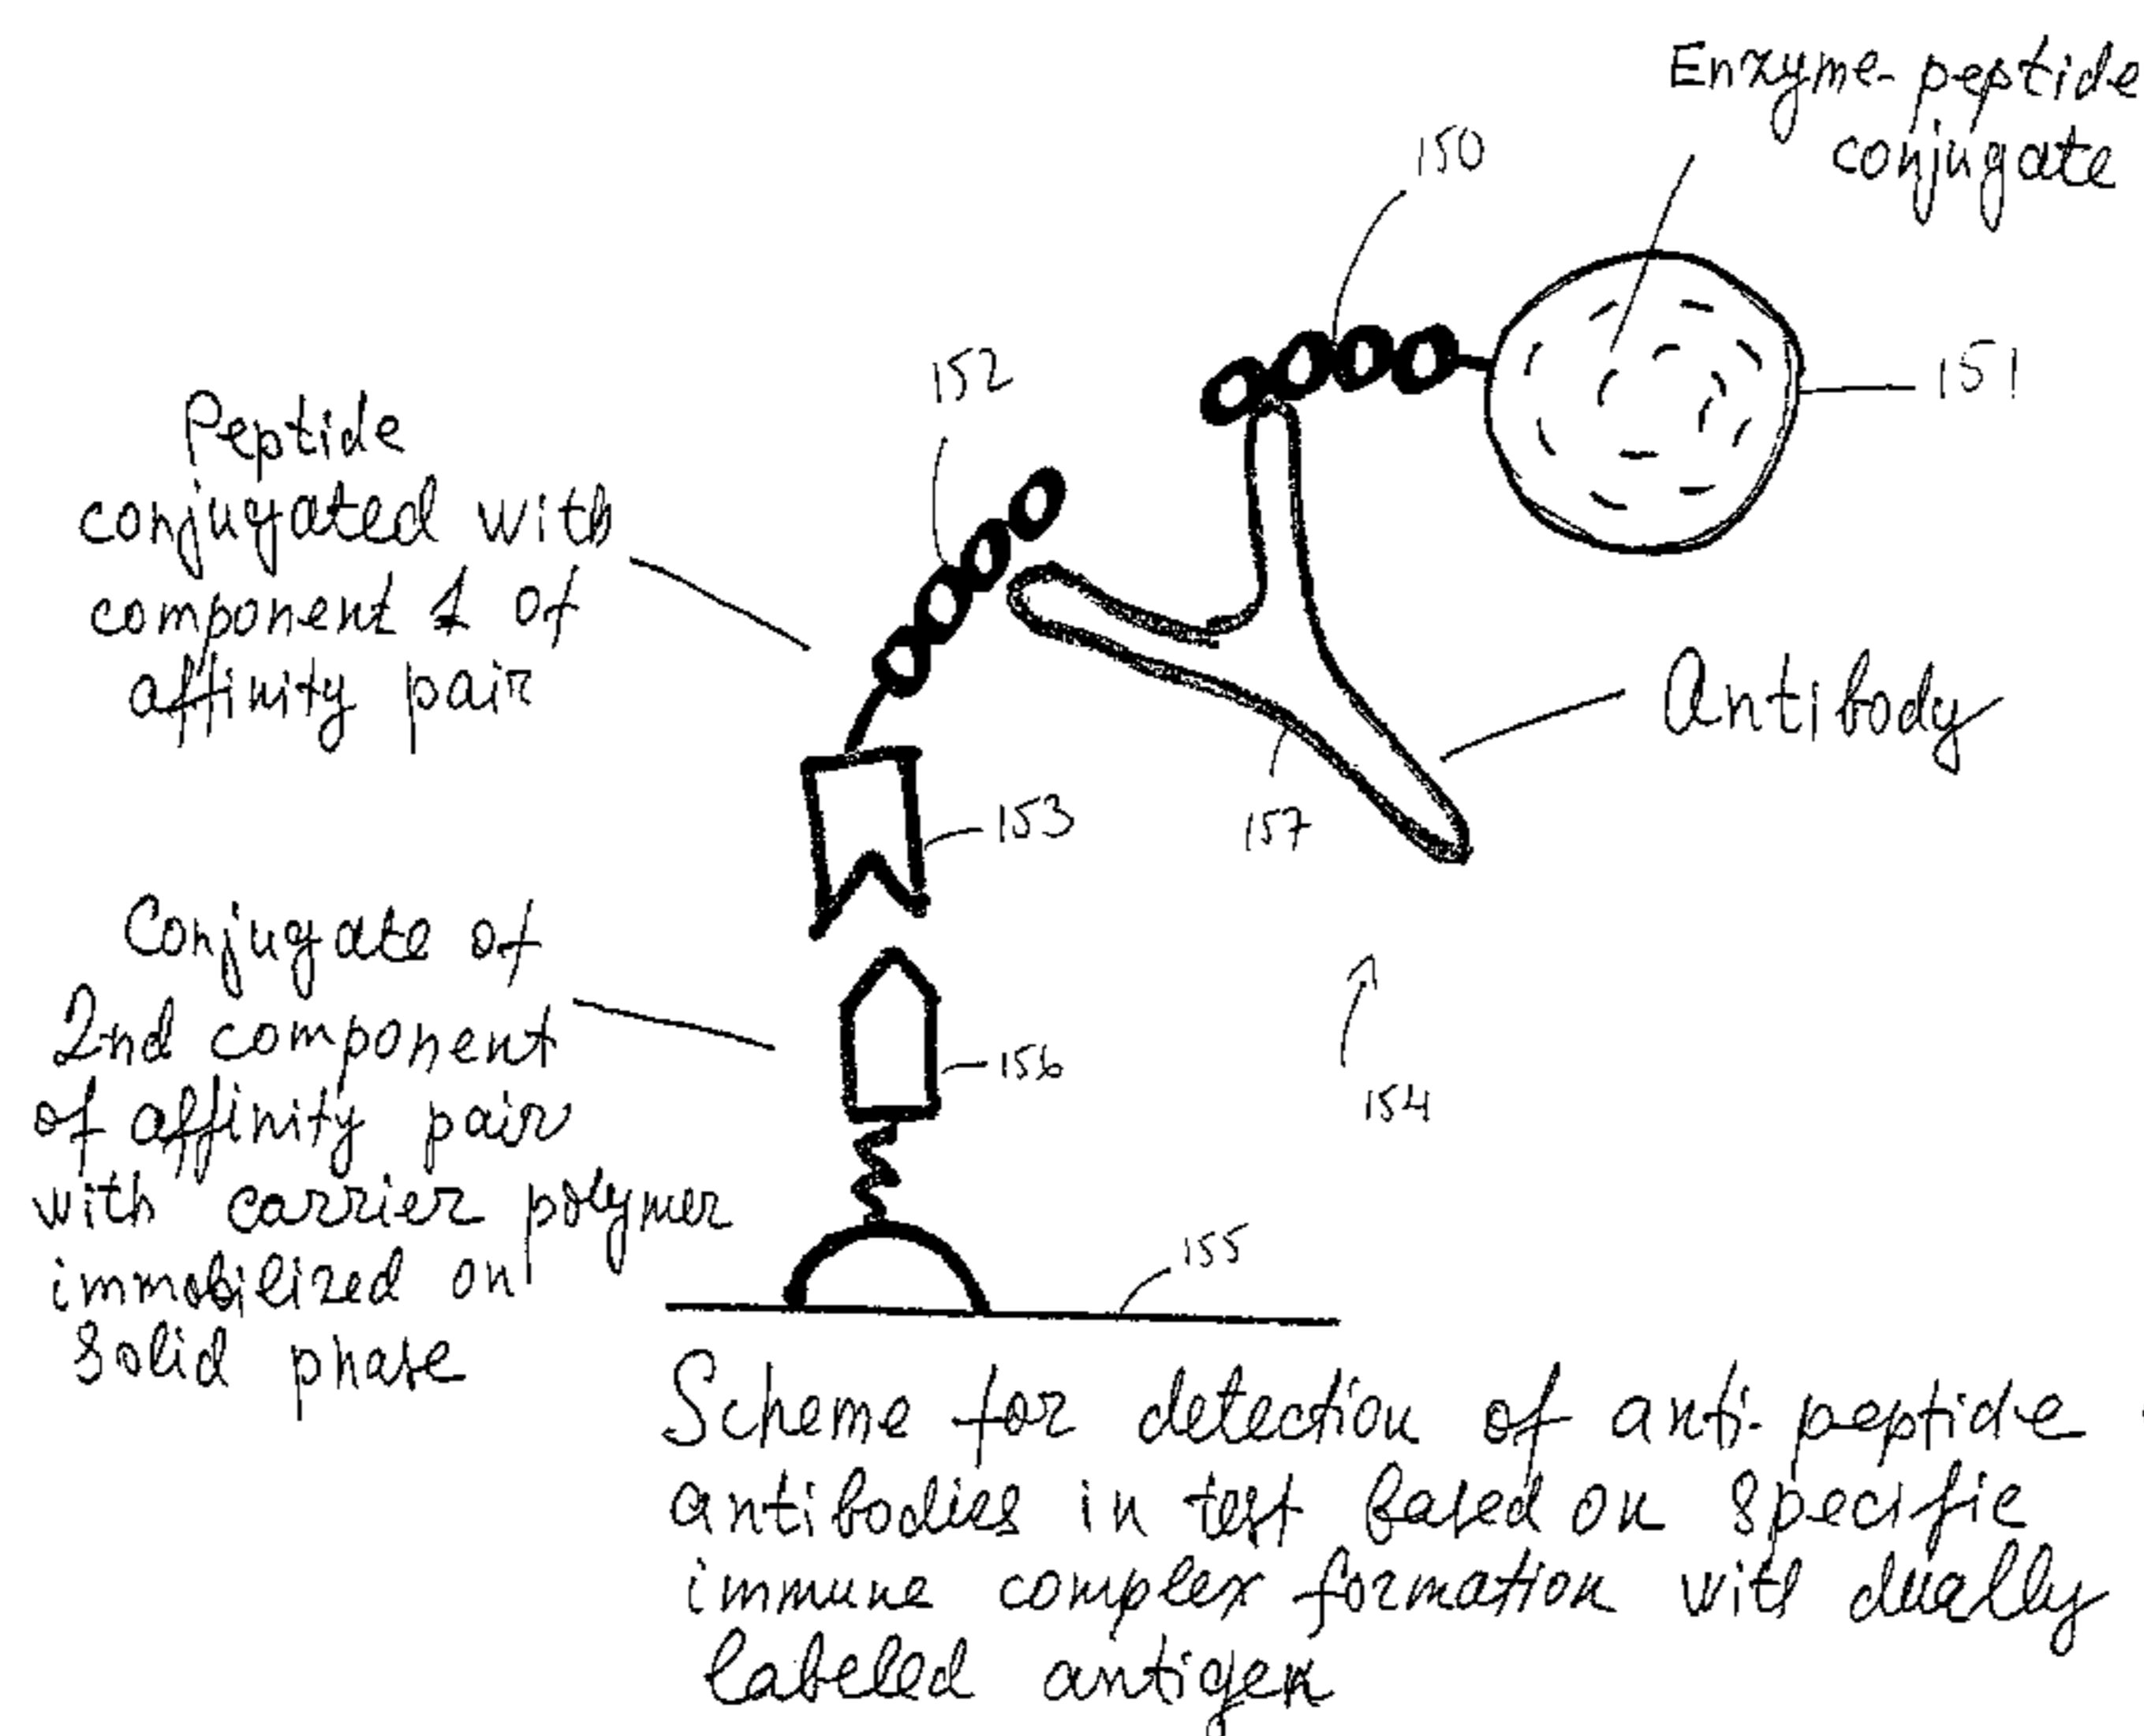 Enzyme-peptide
conjugate
150
151
152
Peptide
conjugated with
component 1 of
affinity pair
Antibody
153
157
Conjugate of
2nd component
of affinity pair
with carrier polymer
immobilized on
solid phase
156
154
155
Scheme for detection of anti-peptide
antibodies in test based on specific
immune complex formation with dually
labeled antigen